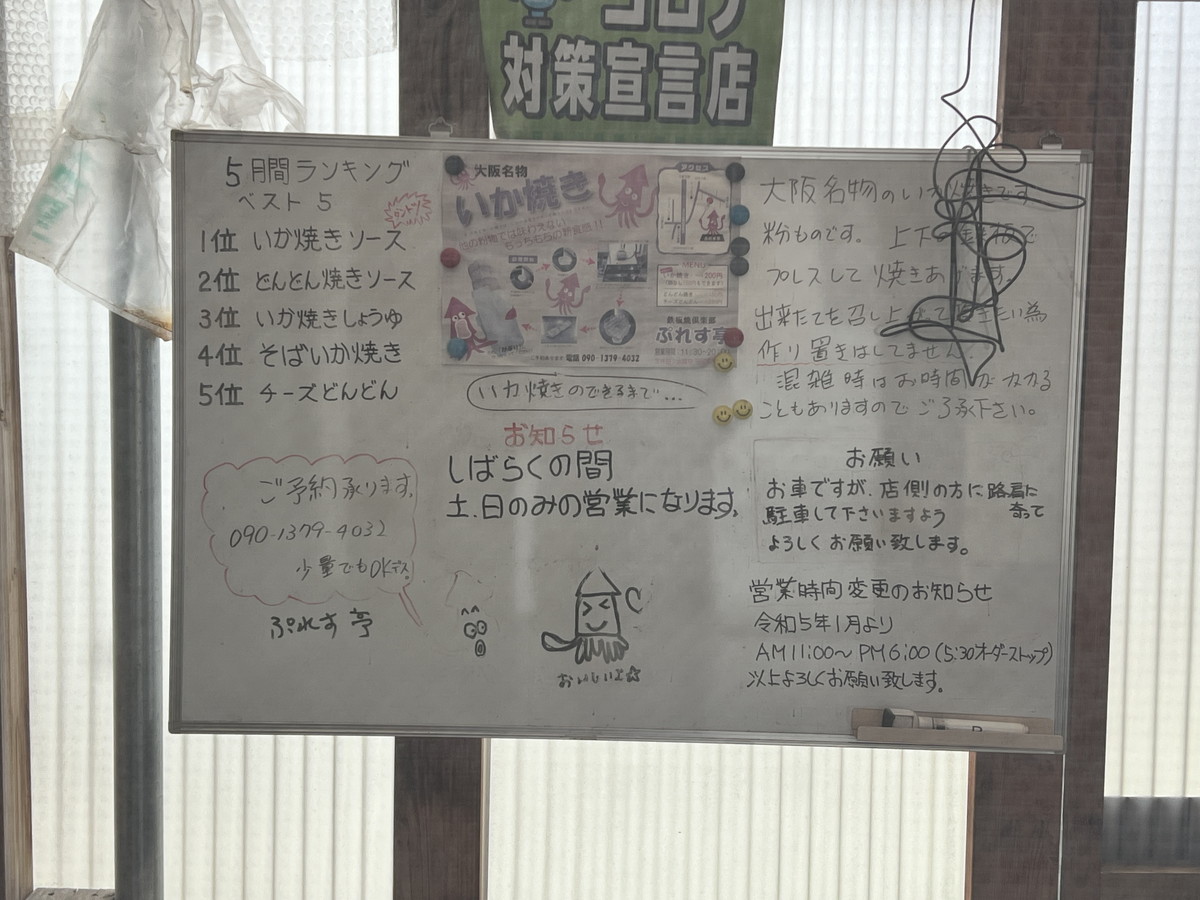 コロナ
対策宣言店
5月間ランキング
ベスト5
1位 いか焼きソース
2位 どんどん焼きソース
3位 いか焼きしょうゆ
4位 そばいか焼き
5位 チーズどんどん
ご予約承ります。
090-1379-4032
少量でもOKデス。
ぷれす亭
大阪名物
いか焼き
アクセス
MENU
いか焼き
鉄板焼倶楽部
ぷれす亭
電話 090-1379-4032
いか焼きのできるまで…
お知らせ
しばらくの間
土.日のみの営業になります。
おいしいよ☆
大阪名物のいか焼きです
粉ものです。 上下の鉄板で
プレスして焼きあげます。
出来たてを召し上がて頂きたい為
作り置きはしてません。
混雑時はお時間がカカる
こともありますのでご了承下さい。
お願い
お車ですが、店側の方に路肩に寄って
駐車して下さいますよう
よろしくお願い致します。
営業時間変更のお知らせ
令和5年1月より
AM11:00～PM6:00(5:30オーダーストップ)
以上よろしくお願い致します。